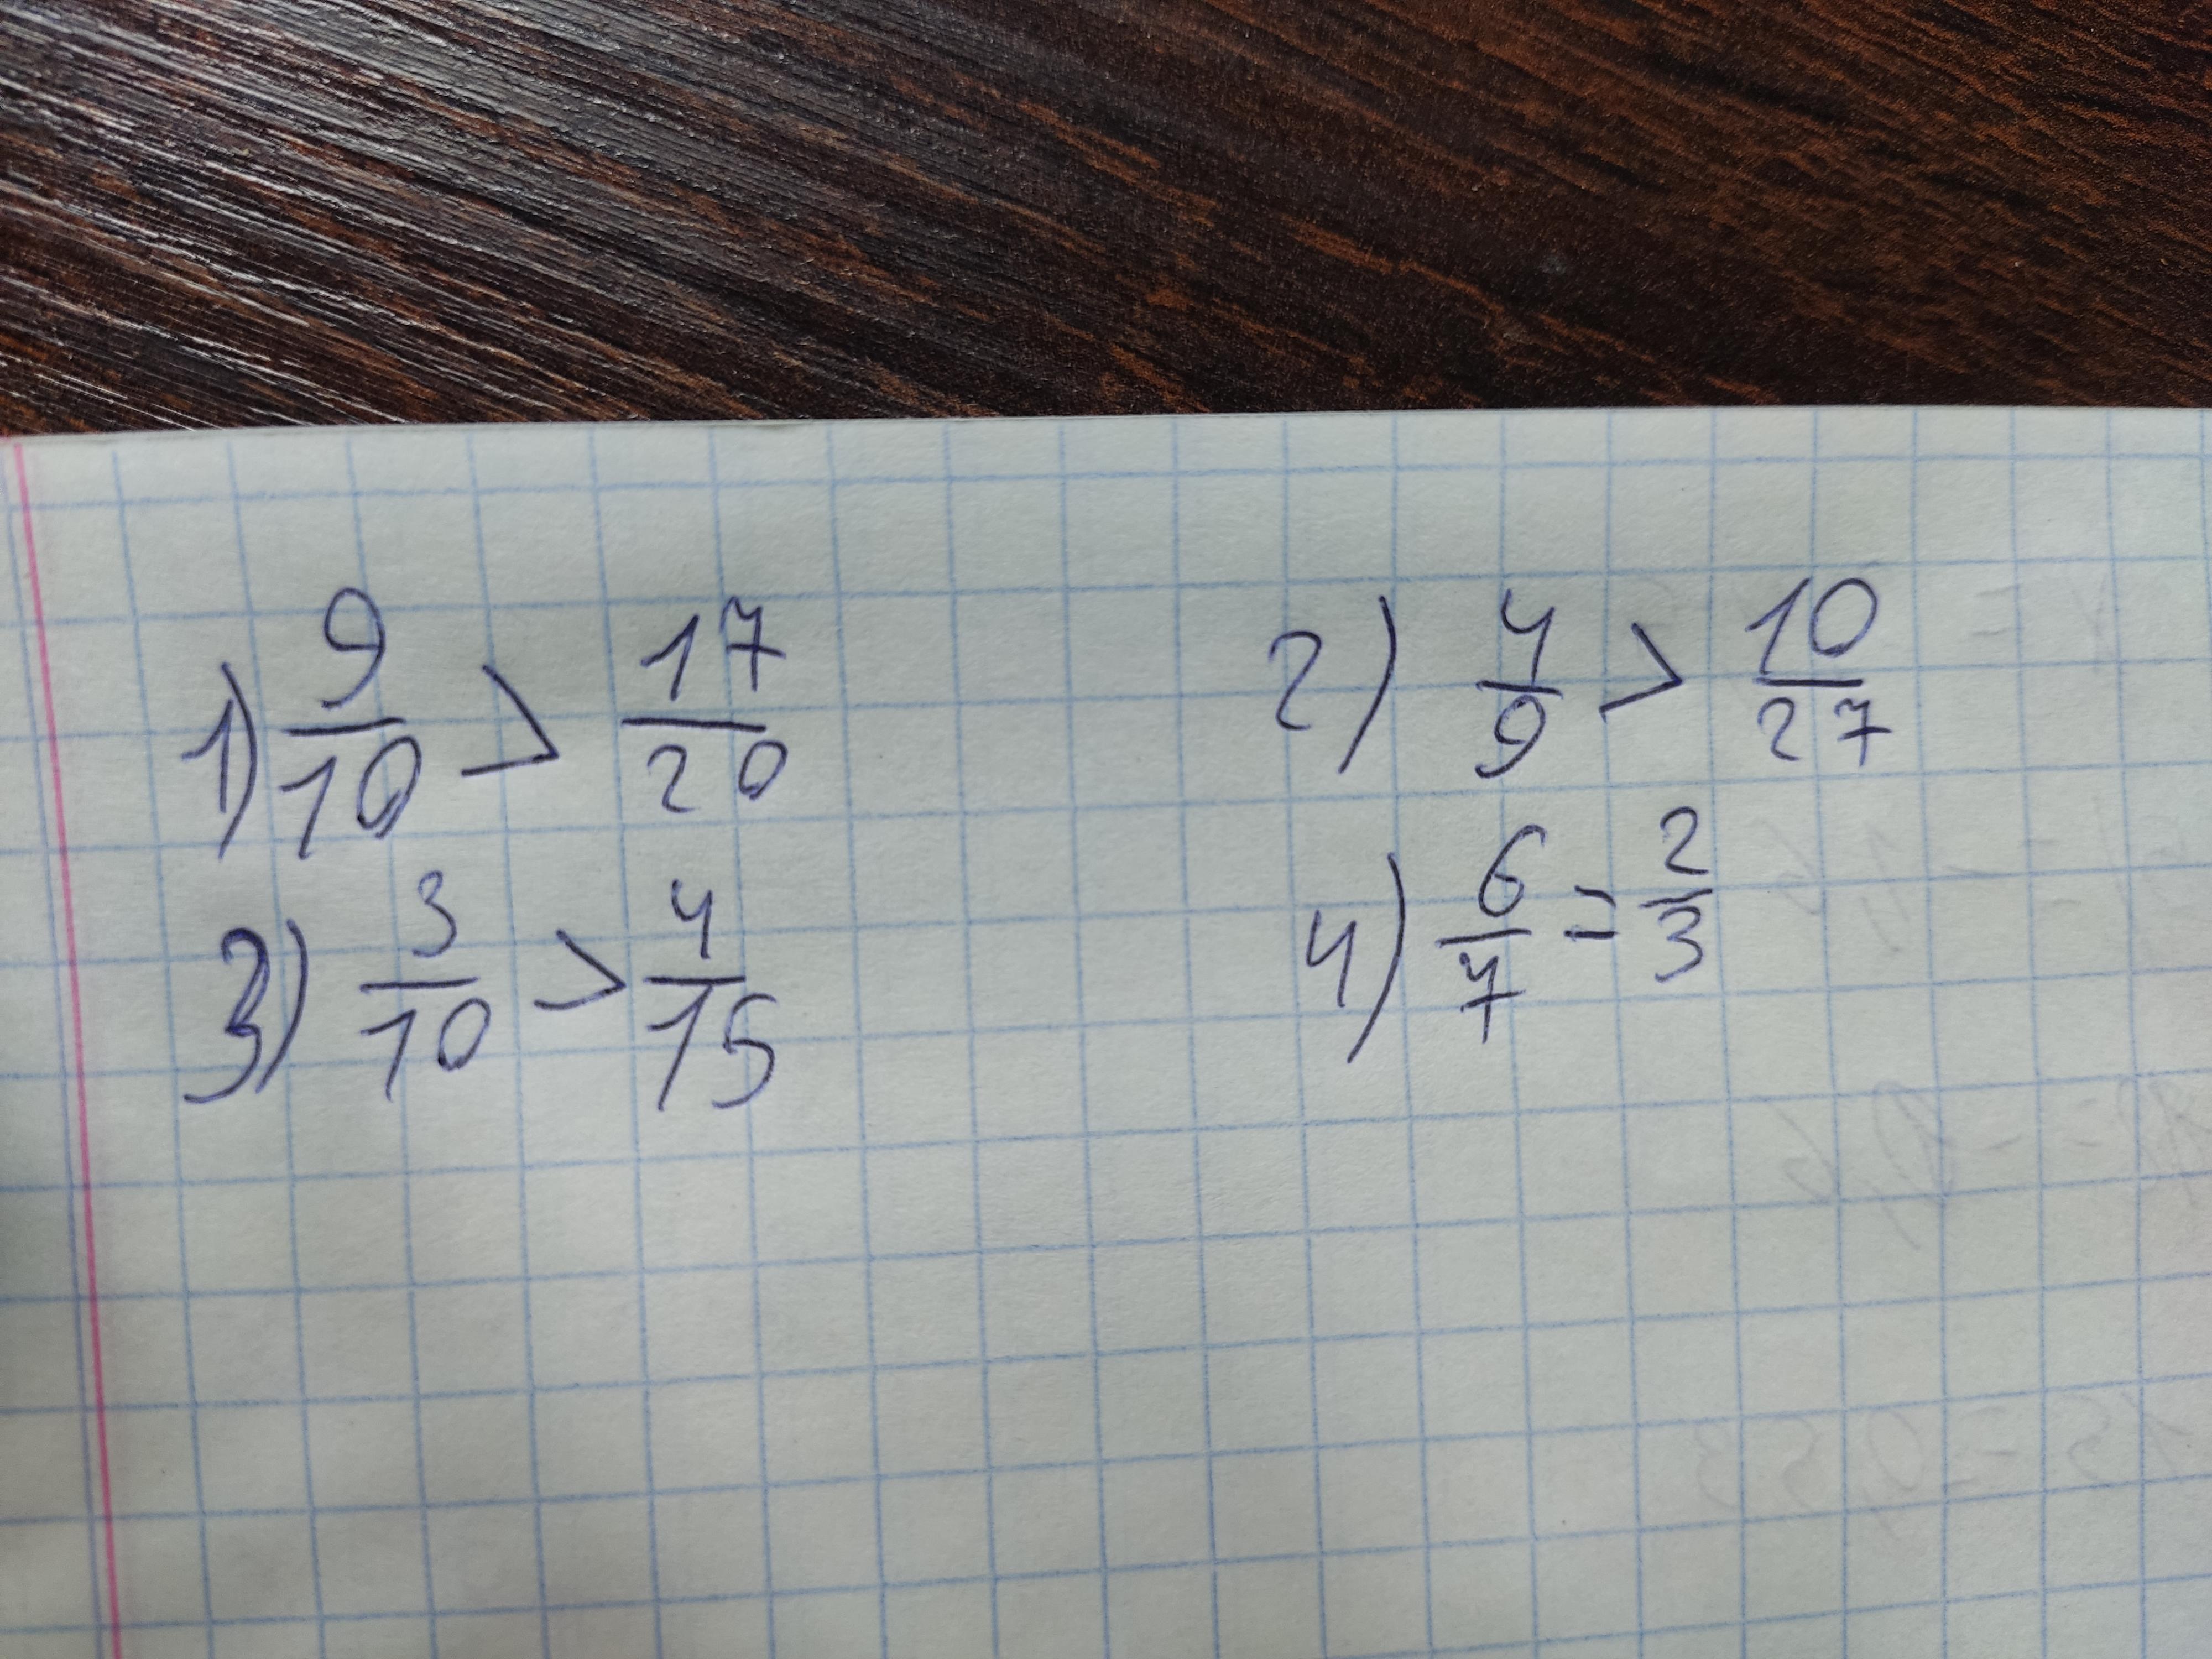 1) 9/10 > 17/20
2) 4/9 > 10/27
3) 3/10 > 4/15
4) 6/7 = 2/3